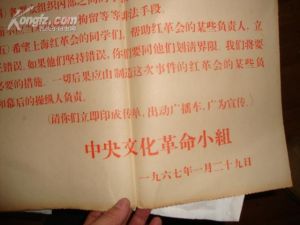 组织内部之间的
拘留等等 法手段。
希望上海红革会的同学们,帮助红革会的某些负责人,立
错误。如果他们坚持错误,你们要同他们划清界限。我们将要
必要的措施。一切后果应由制造这次事件的红革会的某些负
和幕后的操纵人负责。
(请你们立即印成传单,出动广播车,广为宣传。)
中央文化革命小組
一九六七年一月二十九日